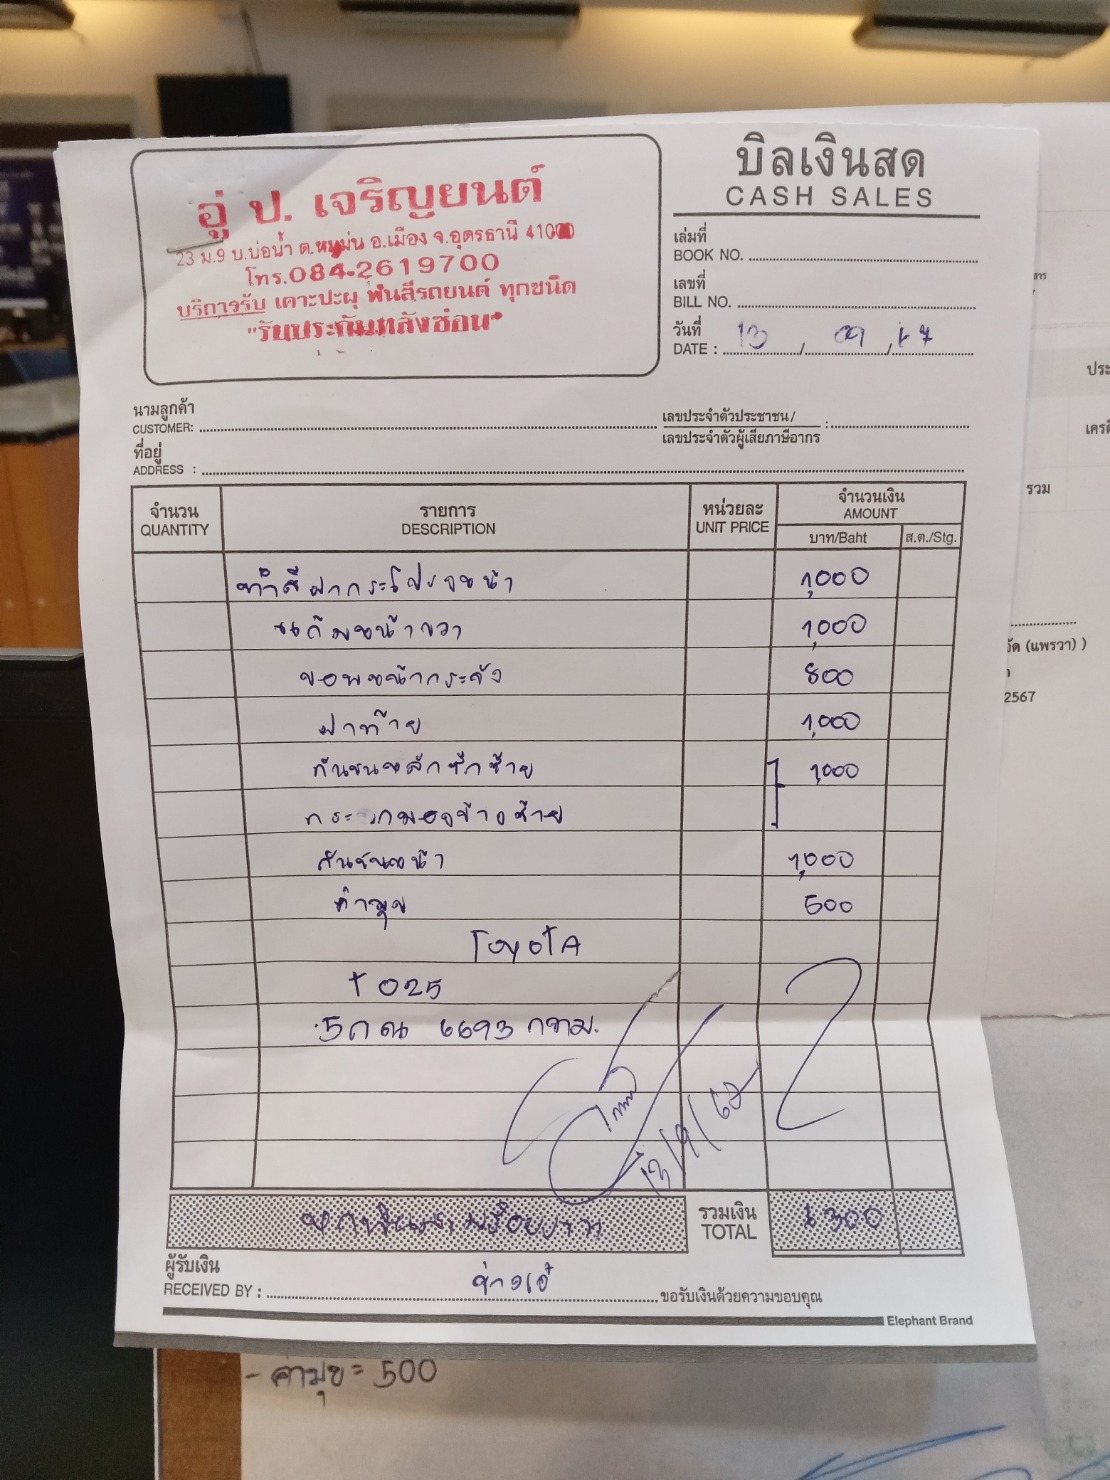 บิลเงินสด
CASH SALES
อู่ ป. เจริญยนต์
23 ม.9 บ.บ่อน้ำ ต.หมูม่น อ.เมือง จ.อุดรธานี 41000
โทร.084-2619700
บริการรับ เคาะปะผุ พ่นสีรถยนต์ ทุกชนิด
"รับประกันหลังซ่อม"
เล่มที่
BOOK NO.
เลขที่
BILL NO.
วันที่
DATE : 13 / 09 / 67
นามลูกค้า
CUSTOMER:
เลขประจำตัวประชาชน /
เลขประจำตัวผู้เสียภาษีอากร :
ที่อยู่
ADDRESS :
จำนวน รายการ หน่วยละ จำนวนเงิน
QUANTITY DESCRIPTION UNIT PRICE AMOUNT
บาท/Baht ส.ต./Stg.
ทำสีฝากระโปรงหน้า 1,000
แก้มหน้าขวา 1,000
ขอบหน้ากระจัง 800
ฝาท้าย 1,000
กันชนหลังซีกซ้าย 1,000
กระจกมองข้างซ้าย
กันชนหน้า 1,000
ค่ามุข 500
TOYOTA
T 025
5กณ 6693 กทม.
13/9/67
หกพันสามร้อยบาท รวมเงิน 6300
TOTAL
ผู้รับเงิน
RECEIVED BY : ช่างเอ๋ ขอรับเงินด้วยความขอบคุณ
Elephant Brand
- ค่ามุข = 500
ประ
เครดิ
รวม
วัด (แพรวา) )
2567